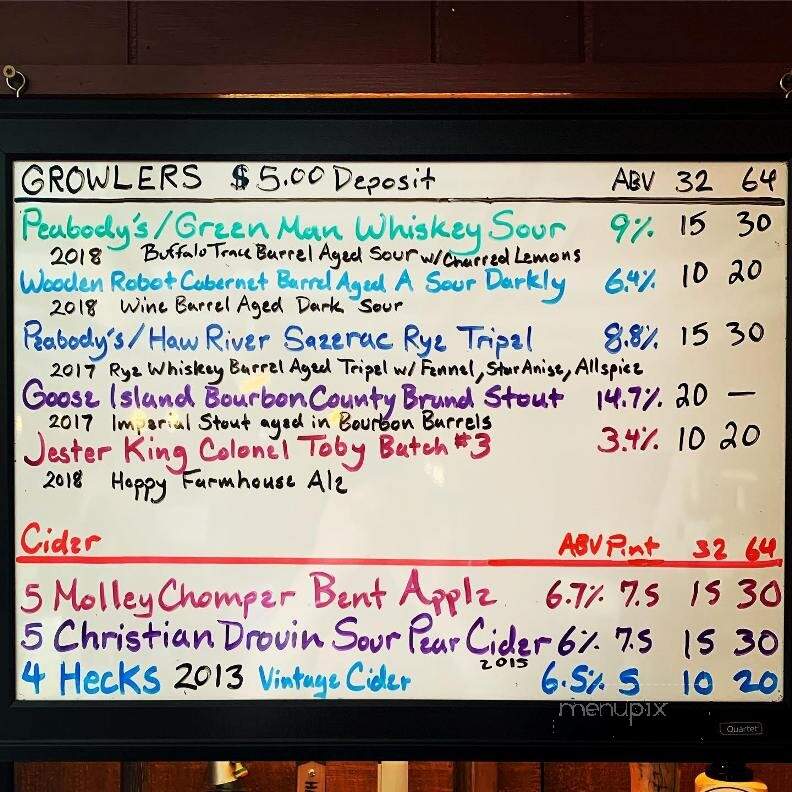 GROWLERS $5.00 Deposit ABV 32 64
Peabody's/Green Man Whiskey Sour 9% 15 30
2018 Buffalo Trace Barrel Aged Sour w/Charred Lemons
Wooden Robot Cabernet Barrel Aged A Sour Darkly 6.4% 10 20
2018 Wine Barrel Aged Dark Sour
Peabody's/Haw River Sazerac Rye Tripel 8.8% 15 30
2017 Rye Whiskey Barrel Aged Tripel w/ Fennel, Star Anise, Allspice
Goose Island Bourbon County Brand Stout 14.7% 20 —
2017 Imperial Stout aged in Bourbon Barrels
Jester King Colonel Toby Batch #3 3.4% 10 20
2018 Hoppy Farmhouse Ale
Cider ABV Pint 32 64
5 Molley Chomper Bent Apple 6.7% 7.5 15 30
5 Christian Drouin Sour Pear Cider 6% 7.5 15 30
2015
4 Hecks 2013 Vintage Cider 6.5% 5 10 20
menupix
Quartet